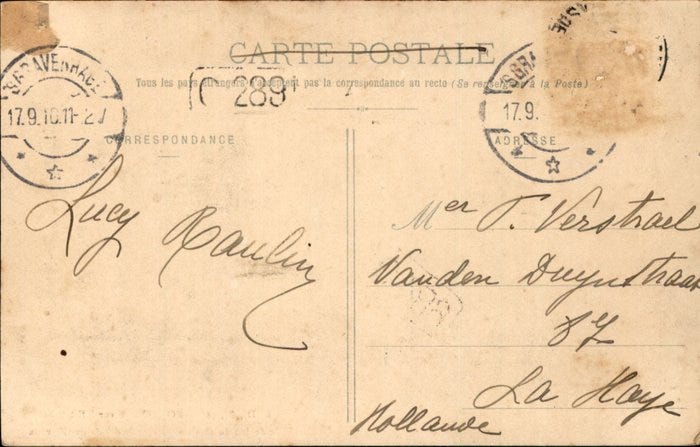 CARTE POSTALE
Tous les pays étrangers n'acceptent pas la correspondance au recto (Se renseigner à la Poste)
289
'SGRAVENHAGE
17.9.10.11-12V
CORRESPONDANCE
Lucy Raulin
'SGRA
17.9.
ADRESSE
Mer T. Verstrael
Vanden Duynstraat
87
La Haye
Hollande